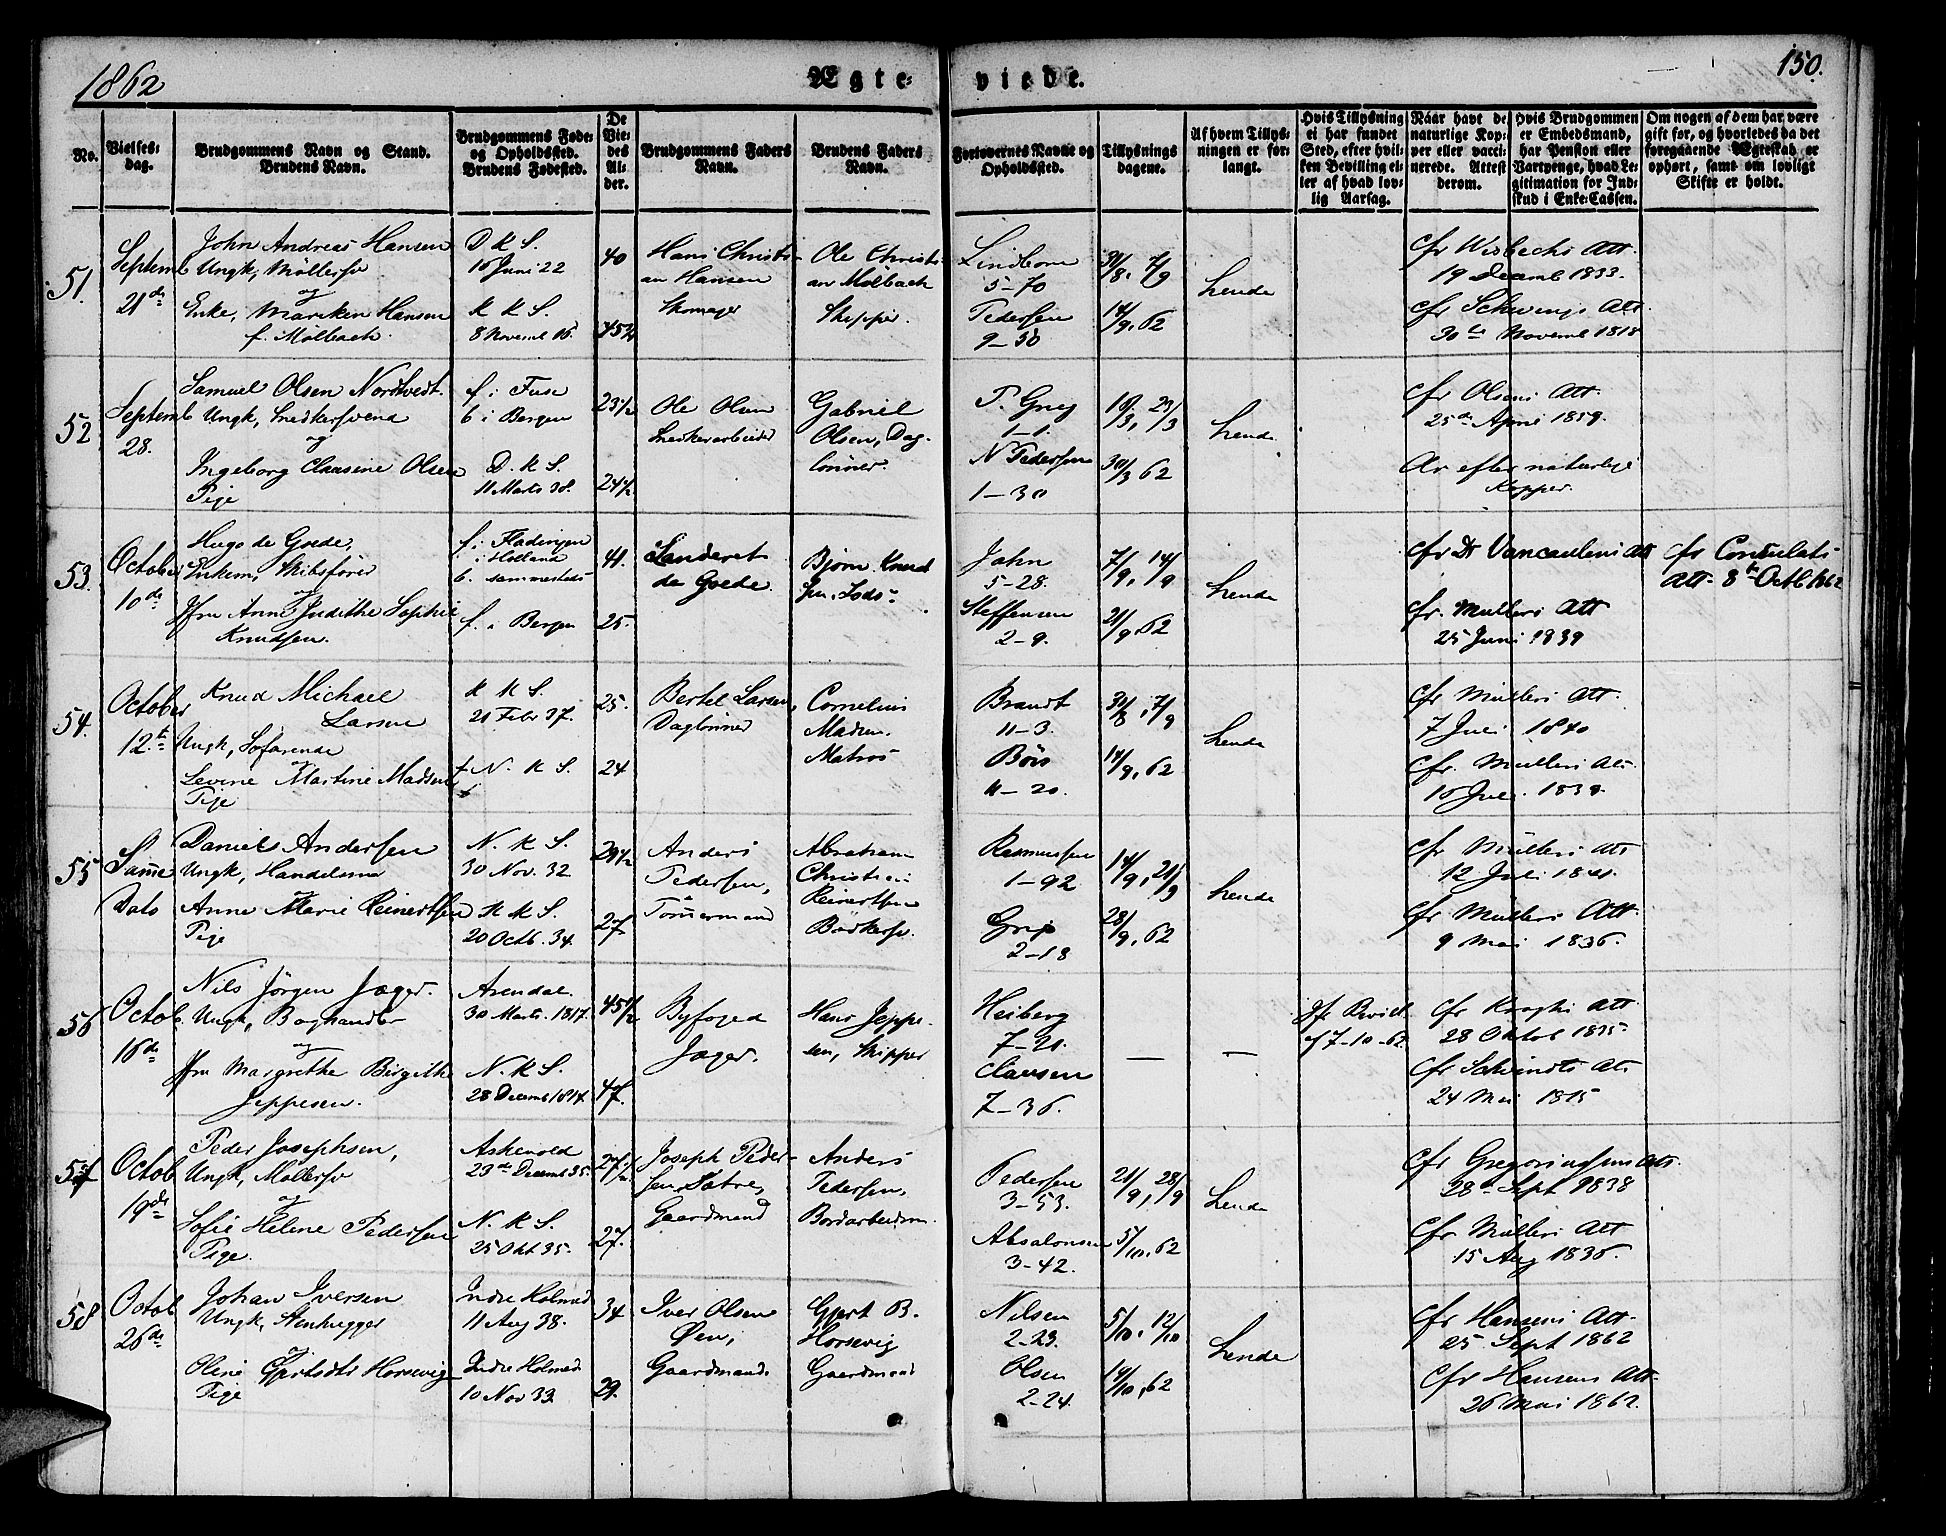 1862
Ægte-
viede.
150.
No.
Vielses-
dag.
Brudgommens Navn og Stand.
Brudens Navn.
Brudgommens Føde-
og Opholdssted.
Brudens Fødested.
De
Vie-
des
Al-
der.
Brudgommens Faders
Navn.
Brudens Faders
Navn.
Forlovernes Navne og
Opholdssted.
Tillysnings
dagene.
Af hvem Tillys-
ningen er for-
langt.
Hvis Tillysning
ei har fundet
Sted, efter hvil-
ken Bevilling el-
ler af hvad lov-
lig Aarsag.
Naar havt de
naturlige Kop-
per eller vacci-
nerede. Attest
derom.
Hvis Brudgommen
er Embedsmand,
har Pension eller
Vartpenge, hvad Le-
gitimation for Ind-
skud i Enke-Cassen.
Om nogen af dem har være
gift før, og hvorledes da det
foregaaende Ægteskab er
ophørt, samt om lovligt
Skifte er holdt.
51.
Septemb
21de
John Andreas Hansen
Ungk, Møllersv
og
Enke, Mariken Hansen
f. Mølbach.
D K S.
16 Juni 22
K K S.
8 Novemb 16.
40
45 1/2
Hans Christi-
an Hansen
Skomager
Ole Christi-
an Mølbach
Skipper.
Lindborn
5-70
Pedersen
9-50
31/8, 7/9
14/9, 62
hende
cfr Wisbechs Att
19 Decemb 1833.
cfr Schwings Att
30te Novemb 1818
52
Septemb
28.
Samuel Olsen Nordtvedt.
Ungk, Snedkersvend
og
Ingeborg Clausine Olsen
Pige
f. i Fuse
b i Bergen
D. K S.
11 Marts 38.
23 1/2
24 1/2
Ole Olsen
Snedkerarbeider
Gabriel
Olsen, Dag-
lønner.
P. Greg
1-1.
N Pedersen
1-30
16/3, 23/3
30/3 62
hende
cfr Olsens Att.
25de April 1859.
Ar efter naturlige
Kopper.
53.
October
10de
Hugo de Goede,
Enkem, Skibsfører
og
Jfru Anne Judithe Sophie
Knudsen.
f. i
i Holland
b. sammesteds
f. i Bergen
41.
25.
Landeret
de Goede
Bjørn Knud
sen, Lods
John
5-28.
Steffensen
2-9.
7/9, 14/9
21/9, 62
hende
cfr Dr Vancaulens Att
cfr. Müllers Att
25 Juni 1839
cfr Consulats
Att. 8de Octb 1862
54.
October
12te
Knud Michael
Larsen
Ungk, Søfarende
og
Levine Martine Madsen
Pige
K K S.
21 Febr 37.
N. K S.
25.
24
Bertel Larsen,
Daglønner
Cornelius
Madsen.
Matros
Brandt
11-3.
Böis
11-20.
31/8, 7/9
14/9, 62
hende
cfr Müllers Att.
7 Juli 1840
cfr. Müllers Att.
16 Juli. 1838.
55
Samme
Dato
Daniel Andersen
Ungk, Handelsmd
og
Anne Marie Reinertsen
Pige
N. K S.
30 Nov. 32
K K S.
20 Octb. 34.
29 1/2
27
Anders
Pedersen,
Tømmermand
Abraham
Christian
Reinertsen
Bødkersv.
Rasmussen
1-92
Grip
2-18
14/9, 21/9
28/9, 62
hende
cfr Müllers Att
12 Juli 1841.
cfr Müllers Att.
9 Mai 1836.
56
Octob.
16de
Nils Jörgen Jæger.
Ungk, Boghandler
og
Jfru Margrethe Birgithe
Jeppesen.
Arendal.
30 Marts. 1817.
N. K S.
28 Decemb 1814.
45 1/2
47.
Byfoged
Jæger.
Hans Jeppe-
sen, Skipper
Heiberg
7-20.
Clausen
7-36.
—
—
cfr Bevill.
af 7-10-62.
cfr Kraghs Att
28 Oktob 1835
cfr Schrindts Att
24 Mai 1815
57
Octob
19de
Peder Josephsen,
Ungk, Møllersv
og
Sofie Helene Pedersen
Pige.
Askevold
23de Decemb 35.
N. K S.
25 Okt 35.
27.
Joseph Peder-
sen Satre,
Gaardmand
Anders
Pedersen,
Bordarbeidsm.
Pedersen
3-53.
Absalonsen
3-42.
21/9, 28/9
5/10, 62
hende
cfr Gregoriussens Att.
28de Sept 1838
cfr Müllers Att
15 Aug 1836.
58
Octob
26de
Johan Iversen
Ungk, Stenhugger
og
Oline Gjertsdtr Horsevig
Pige
Indre Holmed
11 Aug 38.
Indre Holmed
10 Nov 33.
34
29.
Iver Olsen
Øen,
Gaardmand.
Gjert B.
Horsevig
Gaardmand
Nilsen
2-23.
Olsen
2-24.
5/10, 12/10
19/10, 62
hende
cfr Hansens Att
25 Sept 1862
cfr Hansens Att.
26 Mai 1862.